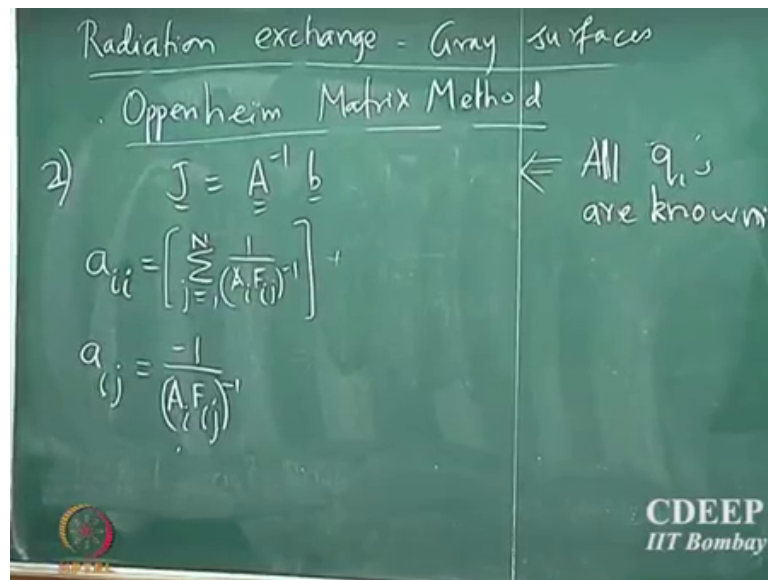 Radiation exchange - Gray surfaces
Oppenheim Matrix Method
2) J = A⁻¹ b
⇐ All qᵢ's
are known
aᵢᵢ = [ Σ_{j=1}^{N} 1/(AᵢFᵢⱼ)⁻¹ ] +
aᵢⱼ = -1/(AᵢFᵢⱼ)⁻¹
CDEEP
IIT Bombay
NPTEL